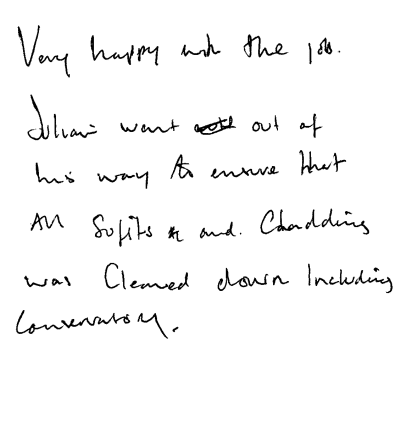 Very happy with the job.
Julian went out of
his way to ensure that
All Sofits and. Cladding
was Cleaned down Including
Conservatory.